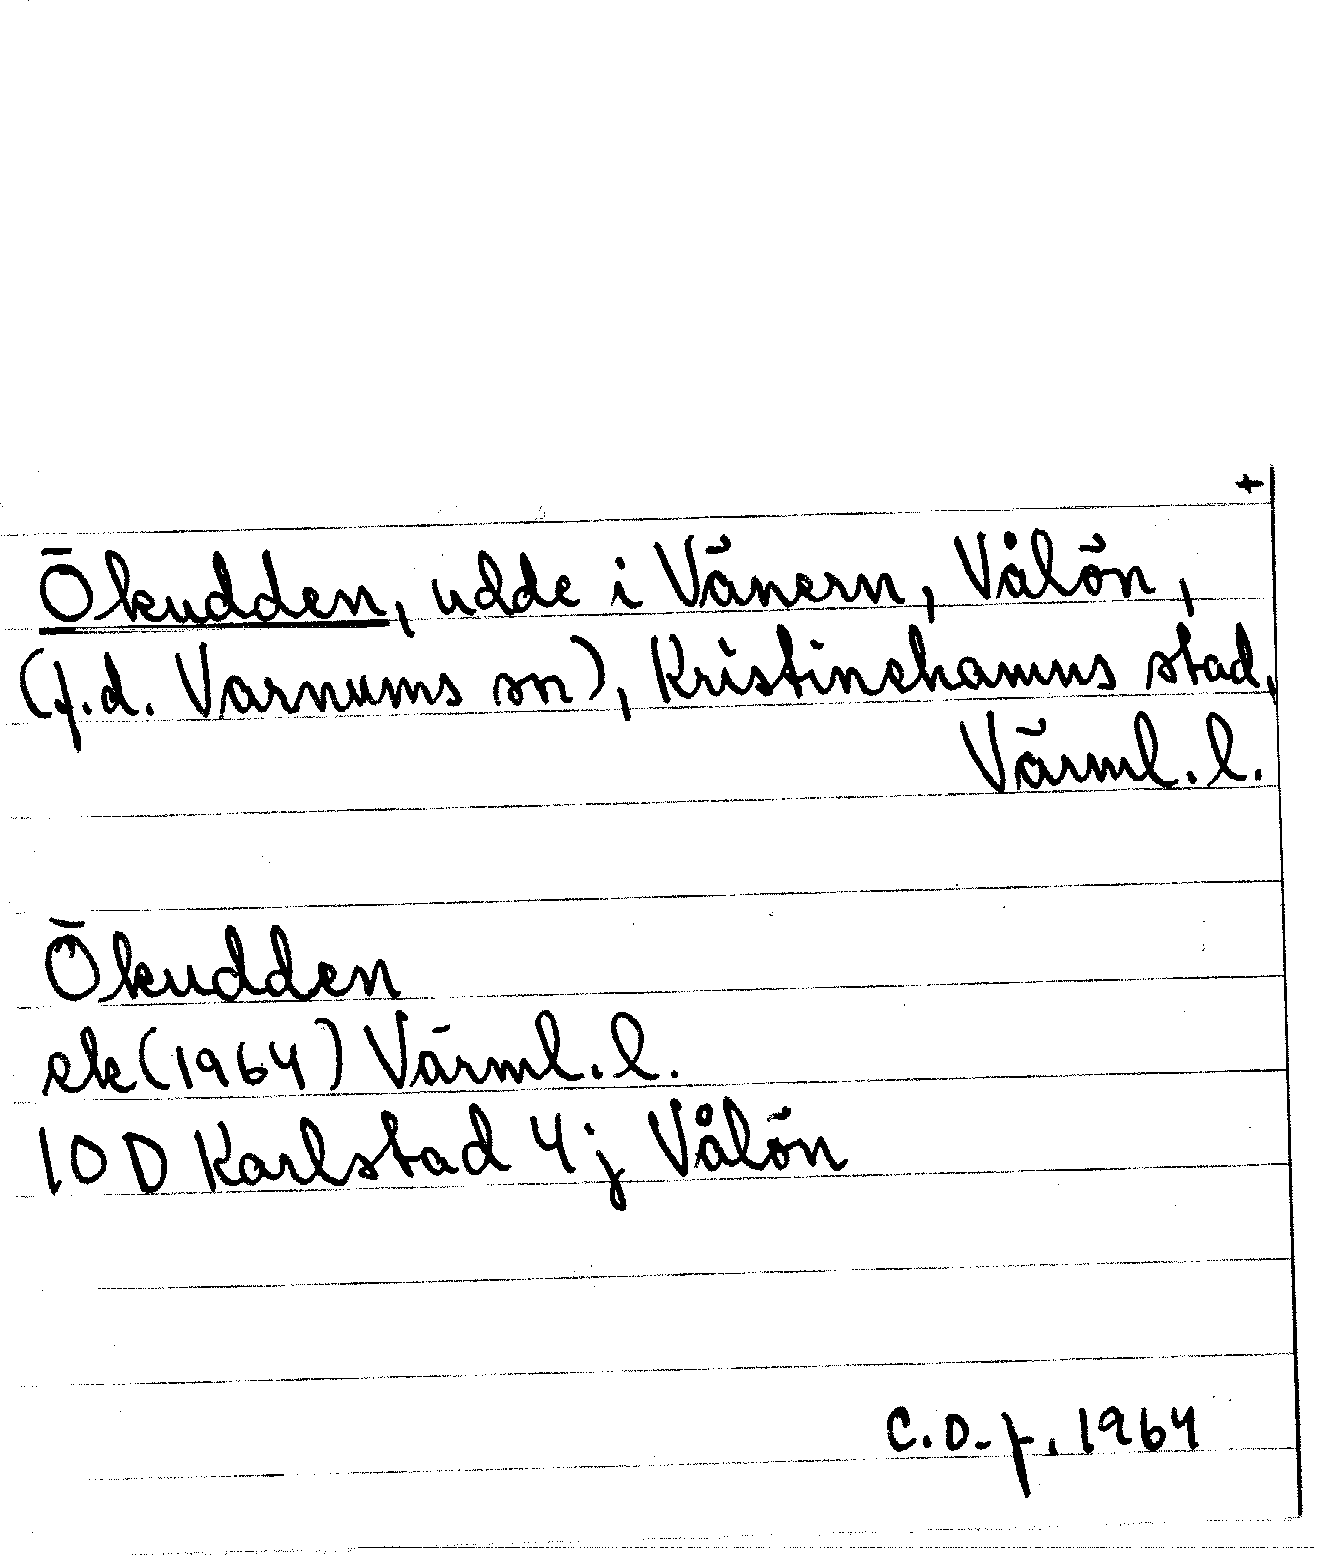 +
Ökudden, udde i Vänern, Vålön,
(f.d. Varnums sn), Kristinehamns stad,
Värml. l.
Ökudden
ek (1964) Värml. l.
10 D Karlstad 4 j Vålön
C.D-f. 1964